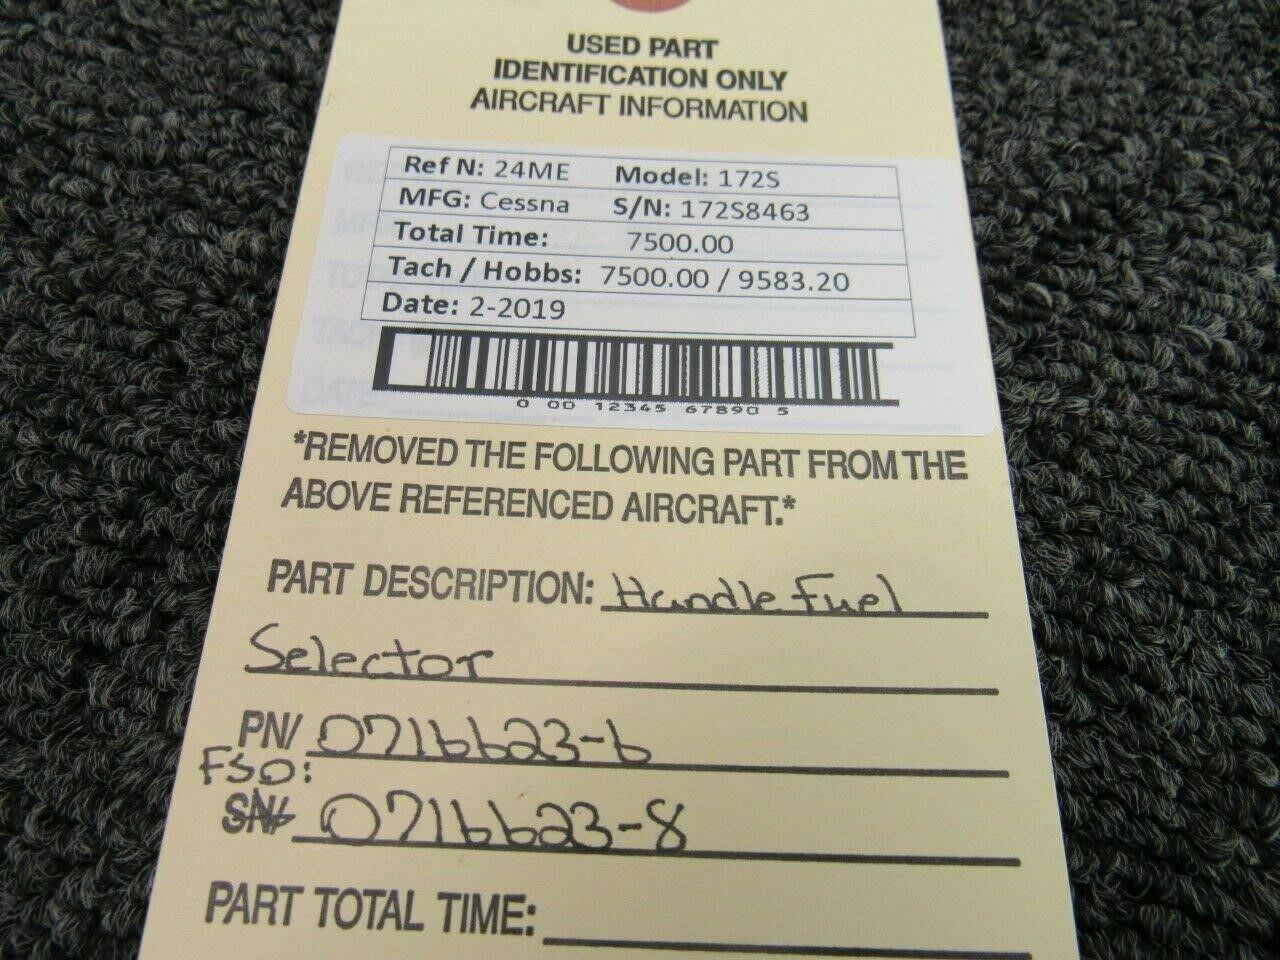 USED PART
IDENTIFICATION ONLY
AIRCRAFT INFORMATION
Ref N: 24ME Model: 172S
MFG: Cessna S/N: 172S8463
Total Time: 7500.00
Tach / Hobbs: 7500.00 / 9583.20
Date: 2-2019
0 00 12345 67890 5
*REMOVED THE FOLLOWING PART FROM THE
ABOVE REFERENCED AIRCRAFT.*
PART DESCRIPTION: Handle Fuel
Selector
PN/ 0716623-6
FSO:
SN/ 0716623-8
PART TOTAL TIME: